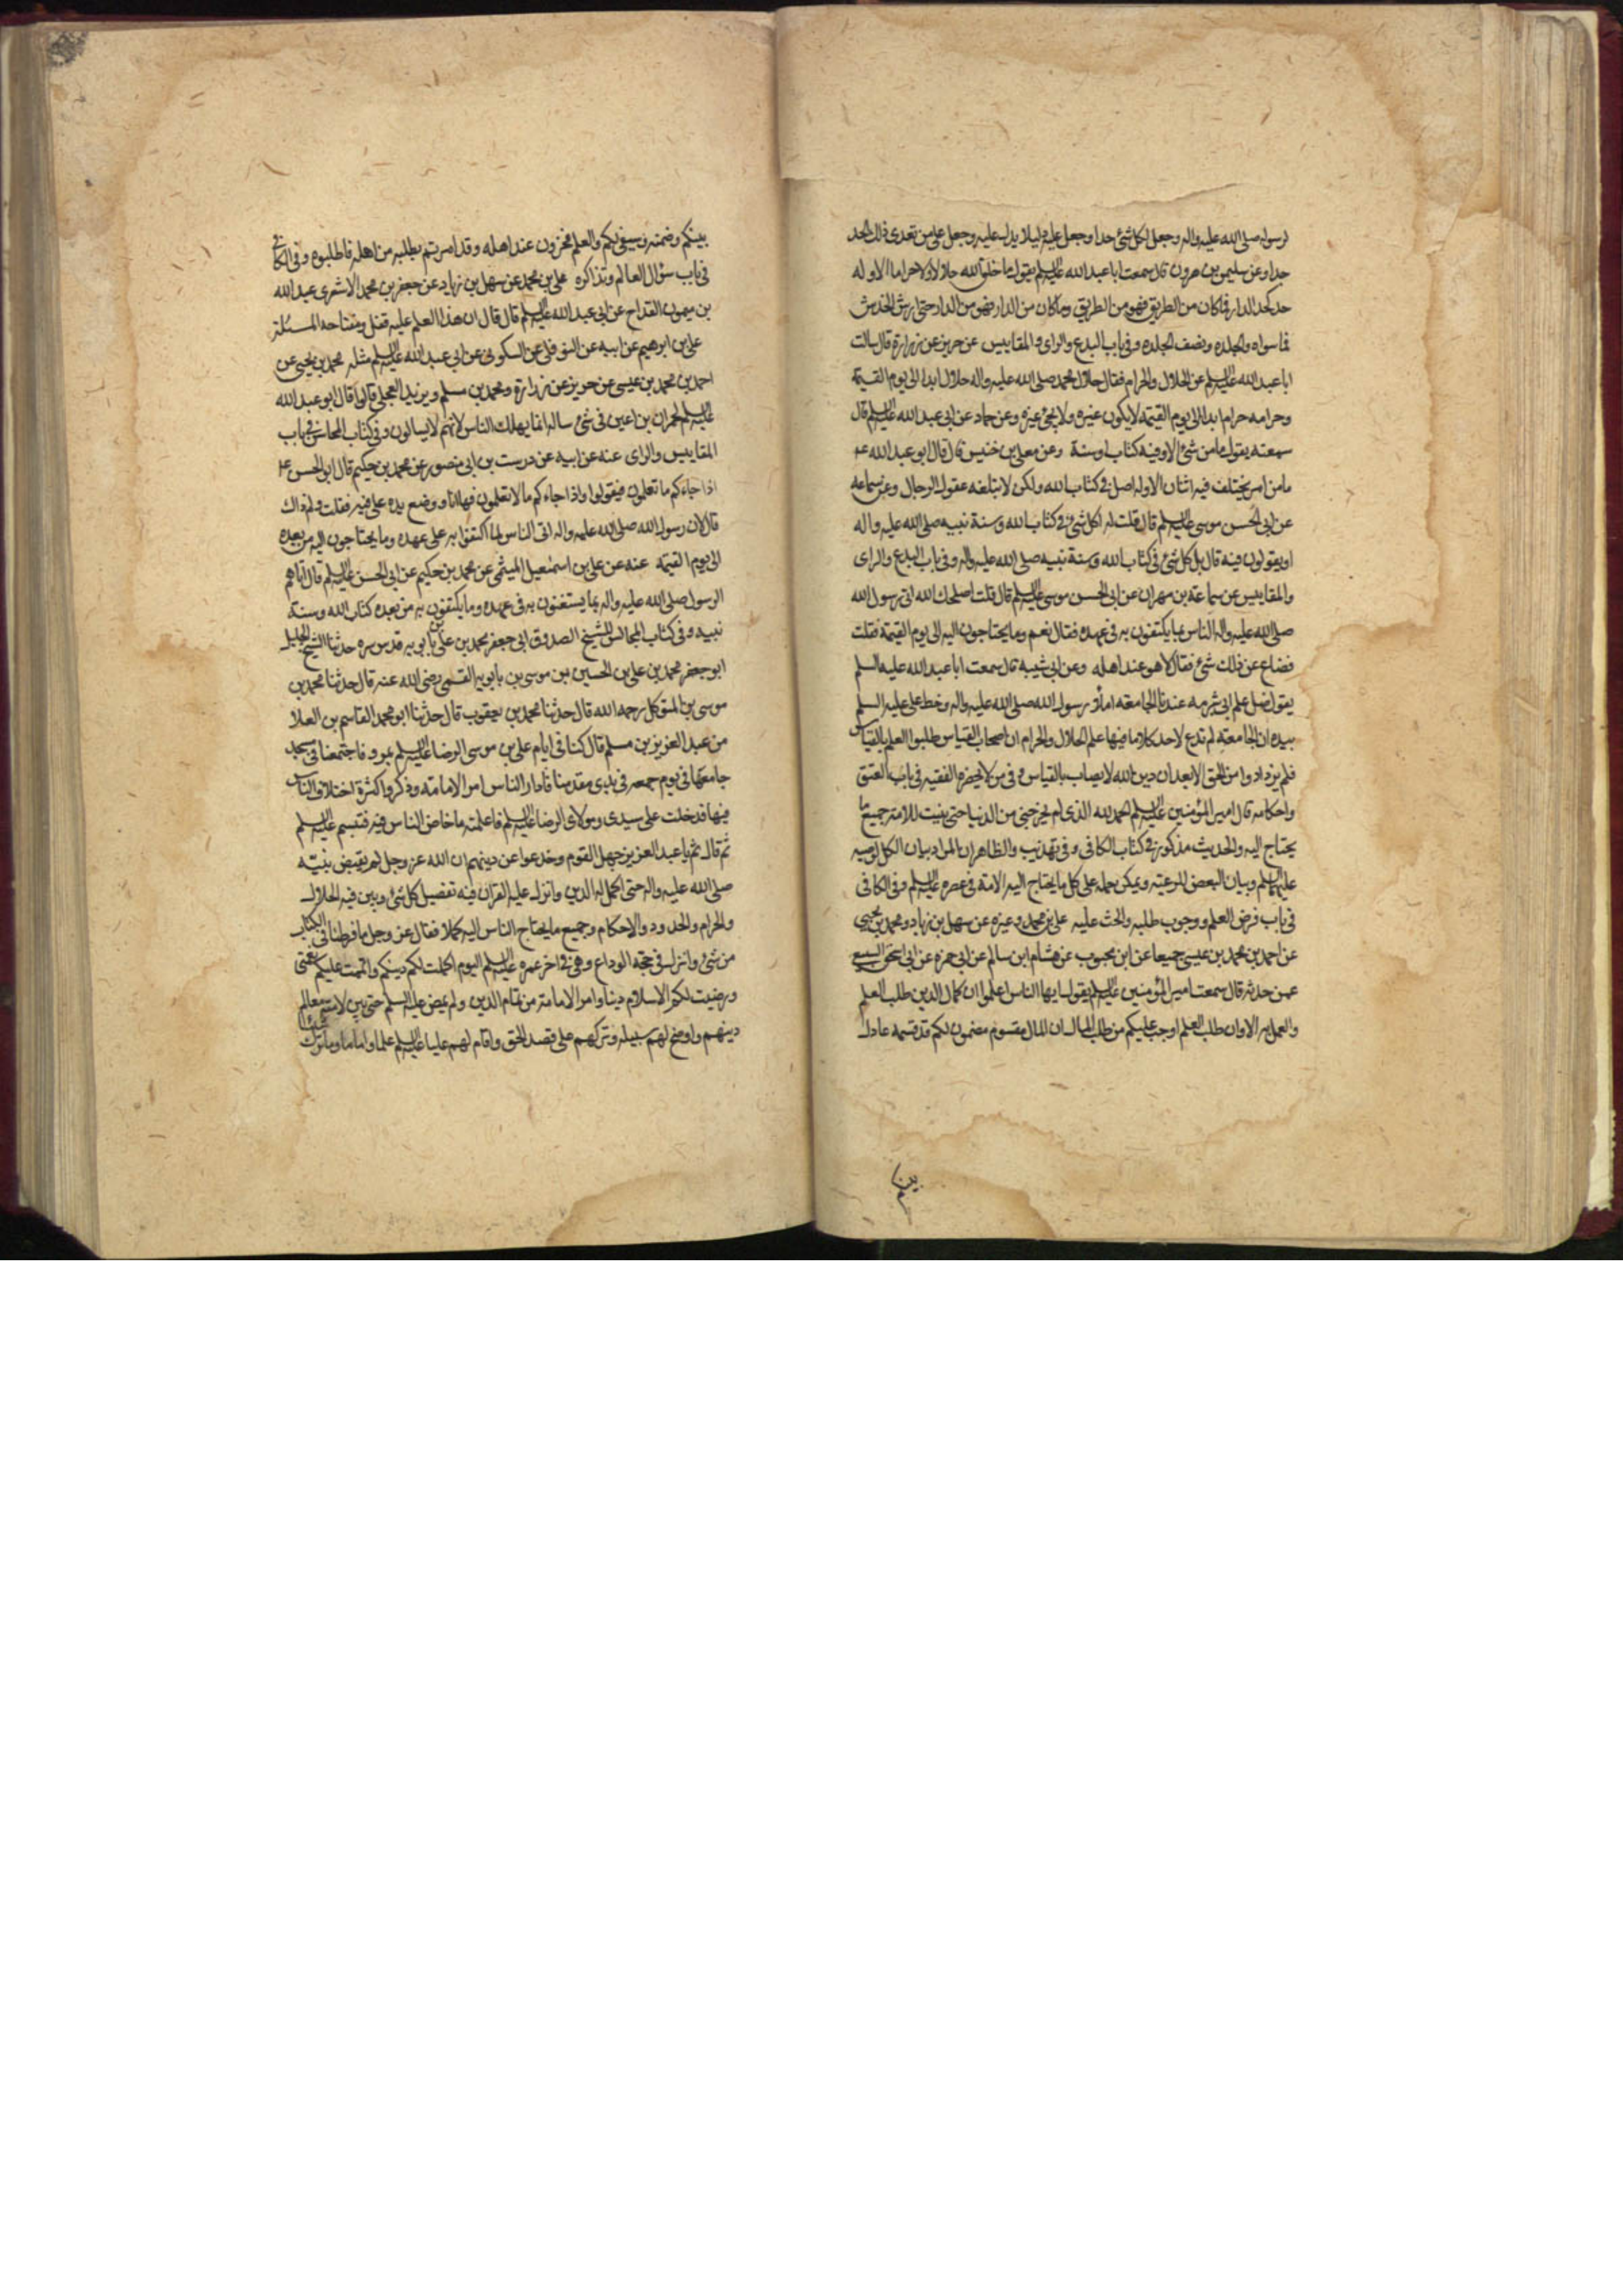 لرسوله صلى الله عليه واله وجعل لكل شئ حدا وجعل عليه دليلا يدل عليه وجعل على من تعدى ذلك الحد
حدا وعن سليمن بن هرون قال سمعت ابا عبد الله عليه السلم يقول ما خلق الله حلالا ولا حراما الا وله
حد كحد الدار فما كان من الطريق فهو من الطريق وما كان من الدار فهو من الدار حتى ارش الخدش
فما سواه والجلده ونصف الجلده وفى باب البدع والراى والمقاييس عن حريز عن زرارة قال سالت
ابا عبد الله عليه السلم عن الحلال والحرام فقال حلال محمد صلى الله عليه واله حلال ابدا الى يوم القيمة
وحرامه حرام ابدا الى يوم القيمة لا يكون غيره ولا يجئ غيره وعن حماد عن ابى عبد الله عليه السلم قال
سمعته يقول ما من شئ الا وفيه كتاب او سنة وعن معلى بن خنيس قال قال ابو عبد الله ع
ما من امر يختلف فيه اثنان الا وله اصل فى كتاب الله ولكن لا تبلغه عقول الرجال وعن سماعه
عن ابى الحسن موسى عليه السلم قال قلت له اكل شئ فى كتاب الله وسنة نبيه صلى الله عليه واله
او يقولون فيه قال بل كل شئ فى كتاب الله وسنة نبيه صلى الله عليه واله وفى باب البدع والراى
والمقاييس عن سماعة بن مهران عن ابى الحسن موسى عليه السلم قال قلت اصلحك الله اتى رسول الله
صلى الله عليه واله الناس بما يكتفون به فى عهده فقال نعم وما يحتاجون اليه الى يوم القيمة فقلت
فضاع عن ذلك شئ فقال لا هو عند اهله وعن ابى شيبه قال سمعت ابا عبد الله عليه السلم
يقول ضل علم ابى شبرمه عندنا الجامعة املاء رسول الله صلى الله عليه واله وخط على عليه السلم
بيده ان الجامعة لم تدع لاحد كلاما فيها علم الحلال والحرام ان اصحاب القياس طلبوا العلم بالقياس
فلم يزدادوا من الحق الا بعدا ان دين الله لا يصاب بالقياس وفى من لا يحضره الفقيه فى باب العتق
واحكامه قال امير المؤمنين عليه السلم الحمد لله الذى لم يخرجنى من الدنيا حتى بينت للامة جميع ما
يحتاج اليه والحديث مذكور فى كتاب الكافى وفى تهذيب والظاهر ان المراد بيان الكل لوصيه
عليهما السلم وبيان البعض للرعية ويمكن حمله على كل ما يحتاج اليه الامة فى عصره عليه السلم وفى الكافى
فى باب فرض العلم ووجوب طلبه والحث عليه على بن محمد وغيره عن سهل بن زياد ومحمد بن يحيى
عن احمد بن محمد بن عيسى جميعا عن ابن محبوب عن هشام ابن سالم عن ابى حمزه عن ابى اسحق السبيعى
عمن حدثه قال سمعت امير المؤمنين عليه السلم يقول ايها الناس اعلموا ان كمال الدين طلب العلم
والعمل به الا وان طلب العلم اوجب عليكم من طلب المال ان المال مقسوم مضمون لكم قد قسمه عادل
بينكم
بينكم وضمنه وسيفى لكم والعلم مخزون عند اهله وقد امرتم بطلبه من اهله فاطلبوه وفى الكافى
فى باب سؤال العالم وتذاكره على بن محمد عن سهل بن زياد عن جعفر بن محمد الاشعرى عبد الله
بن ميمون القداح عن ابى عبد الله عليه السلم قال قال ان هذا العلم عليه قفل ومفتاحه المسئلة
على بن ابرهيم عن ابيه عن النوفلى عن السكونى عن ابى عبد الله عليه السلم مثله محمد بن يحيى عن
احمد بن محمد بن عيسى عن حريز عن زرارة ومحمد بن مسلم وبريد العجلى قالوا قال ابو عبد الله
عليه السلم لحمران بن اعين فى شئ ساله انما يهلك الناس لانهم لا يسالون وفى كتاب المحاسن فى باب
المقاييس والراى عنه عن ابيه عن درست بن ابى منصور عن محمد بن حكيم قال ابو الحسن ع
اذا جاءكم ما تعلمون فقولوا واذا جاءكم ما لا تعلمون فها انا ووضع يده على فيه فقلت ولم ذاك
قال لان رسول الله صلى الله عليه واله اتى الناس بما اكتفوا به على عهده وما يحتاجون اليه من بعده
الى يوم القيمة عنه عن على بن اسمعيل الميثمى عن محمد بن حكيم عن ابى الحسن عليه السلم قال اتاهم
الرسول صلى الله عليه واله بما يستغنون به فى عهده وما يكتفون به من بعده كتاب الله وسنة
نبيه وفى كتاب المجالس للشيخ الصدوق ابى جعفر محمد بن على بن بابويه قدس سره حدثنا الشيخ الجليل
ابو جعفر محمد بن على بن الحسين بن موسى بن بابويه القمى رضى الله عنه قال حدثنا محمد بن
موسى بن المتوكل رحمه الله قال حدثنا محمد بن يعقوب قال حدثنا ابو محمد القاسم بن العلا
من عبد العزيز بن مسلم قال كنا فى ايام على بن موسى الرضا عليه السلم بمرو فاجتمعنا فى مسجد
جامعها فى يوم جمعه فى بدى مقدمنا فادار الناس امر الامامة وذكروا كثرة اختلاف الناس
فيها فدخلت على سيدى ومولاى الرضا عليه السلم فاعلمته ما خاض الناس فيه فتبسم عليه السلم
ثم قال ثم يا عبد العزيز جهل القوم وخدعوا عن دينهم ان الله عز وجل لم يقبض نبيه
صلى الله عليه واله حتى اكمل له الدين وانزل عليه القران فيه تفصيل كل شئ وبين فيه الحلال
والحرام والحدود والاحكام وجميع ما يحتاج الناس اليه كملا فقال عز وجل ما فرطنا فى الكتاب
من شئ وانزل فى حجة الوداع وهى فى اخر عمره عليه السلم اليوم اكملت لكم دينكم واتممت عليكم نعمتى
ورضيت لكم الاسلام دينا وامر الامامة من تمام الدين ولم يمض عليه السلم حتى بين لامته معالم
دينهم واوضح لهم سبيله وتركهم على قصد الحق واقام لهم عليا عليه السلم علما واماما وما ترك شيئا